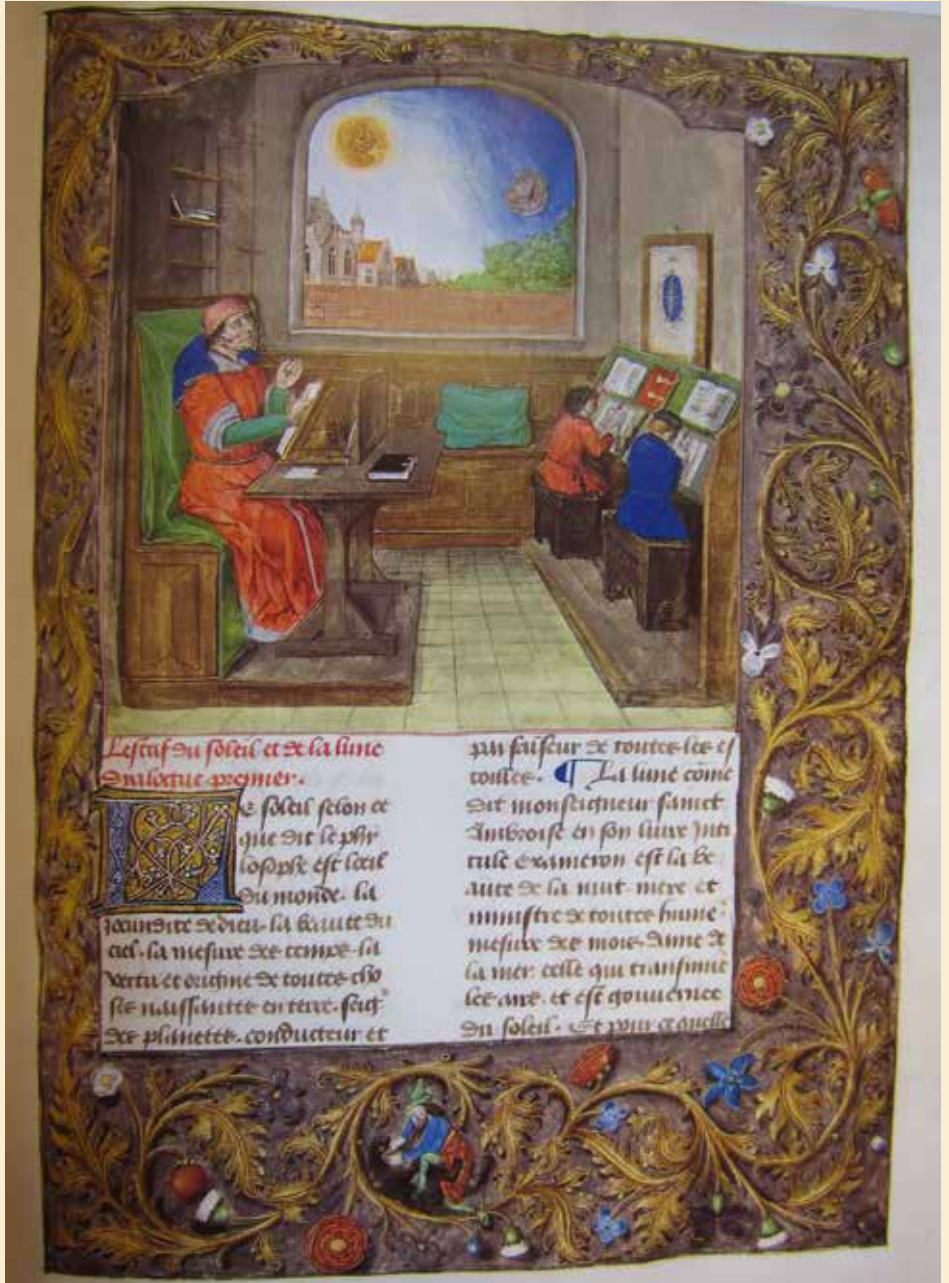 Lestrif du soleil et de la lune
dyalogue premier.
Le soleil selon ce
que dit le phy
losophe est loeil
du monde. la
iocundite de dieu. la beaute du
ciel. la mesure des temps. la
vertu et origine de toutes cho
ses naissantes en terre. seigr
des planettes. conducteur et
parfaiseur de toutes les es
toilles. ¶ La lune cōme
dit monseigneur sainct
Ambroise en son liure Inti
tule exameron est la be
aute de la nuit. mere et
ministre de toutte humer
mesure des mois. dame de
la mer. celle qui transmue
les airs. et est gouuernee
du soleil. Et pour ce quelle